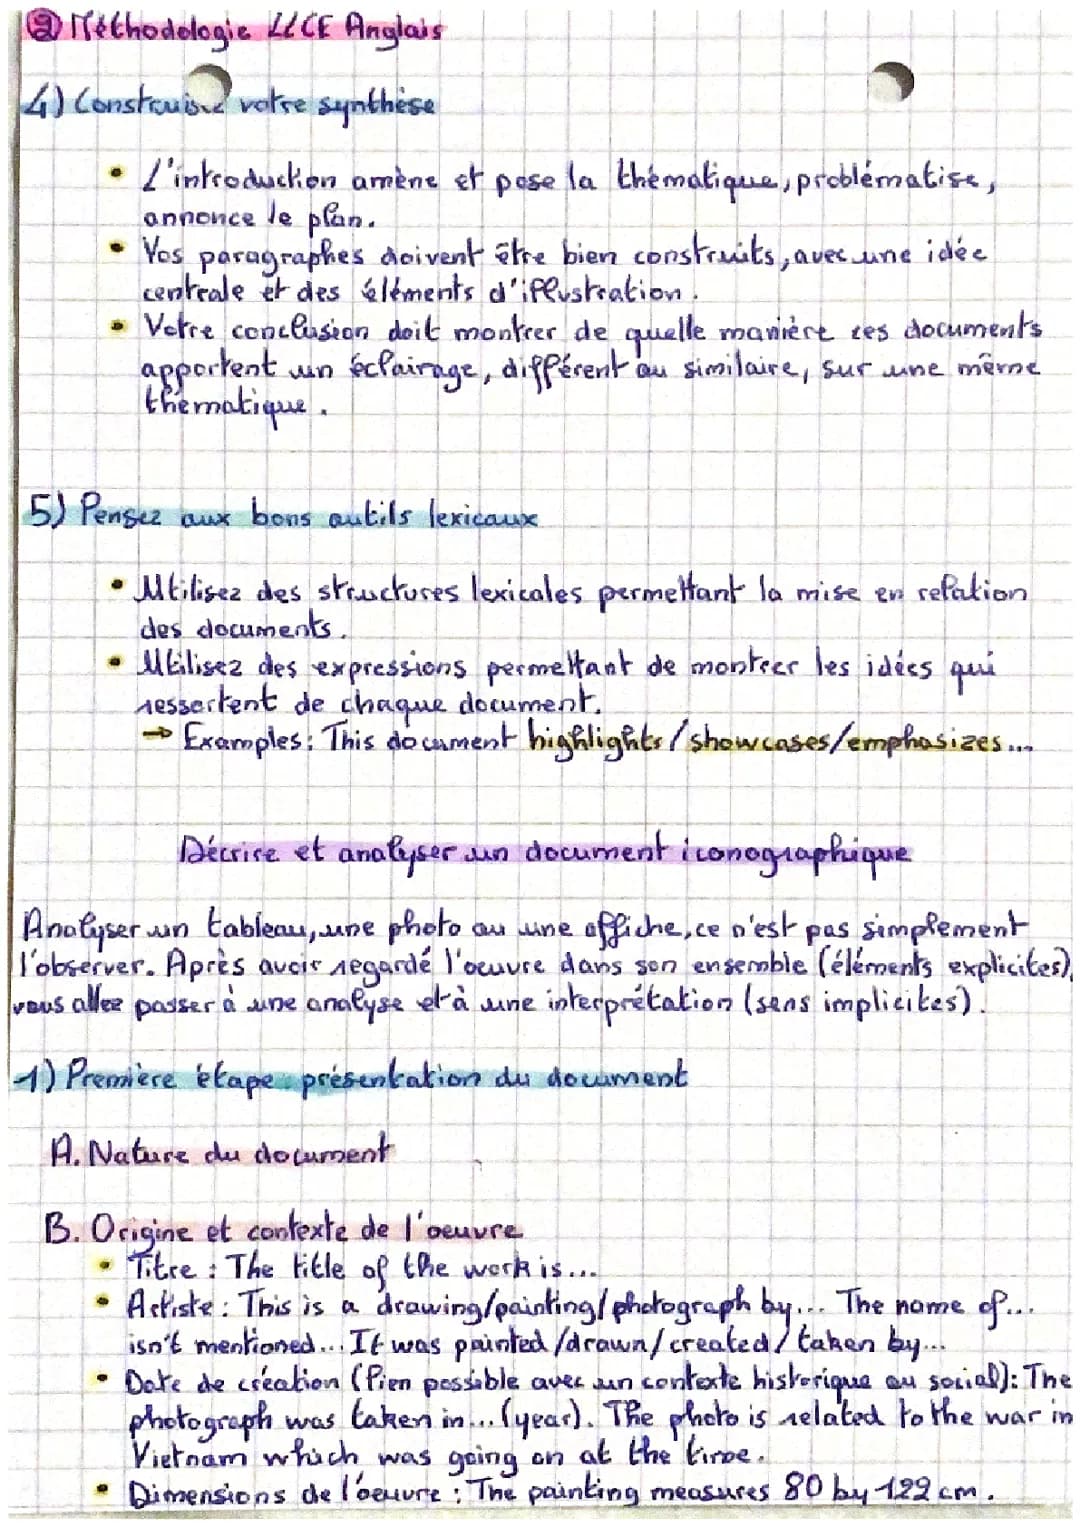 ② Méthodologie LLCE Anglais
4) Construisez votre synthèse
• L'introduction amène et pose la thématique, problématise,
annonce le plan.
• Vos paragraphes doivent être bien construits, avec une idée
centrale et des éléments d'illustration.
• Votre conclusion doit montrer de quelle manière ces documents
apportent un éclairage, différent ou similaire, sur une même
thématique.
5) Pensez aux bons outils lexicaux
• Utilisez des structures lexicales permettant la mise en relation
des documents.
• Utilisez des expressions permettant de montrer les idées qui
ressortent de chaque document.
→ Examples: This document highlights/showcases/emphasizes...
Décrire et analyser un document iconographique
Analyser un tableau, une photo ou une affiche, ce n'est pas simplement
l'observer. Après avoir regardé l'oeuvre dans son ensemble (éléments explicites),
vous allez passer à une analyse et à une interprétation (sens implicites).
1) Première étape présentation du document
A. Nature du document
B. Origine et contexte de l'oeuvre
• Titre : The title of the work is...
• Artiste : This is a drawing/painting/photograph by... The name of...
isn't mentioned... It was painted/drawn/created/taken by...
• Date de création (lien possible avec un contexte historique ou social): The
photograph was taken in... (year). The photo is related to the war in
Vietnam which was going on at the time.
• Dimensions de l'oeuvre : The painting measures 80 by 122 cm.